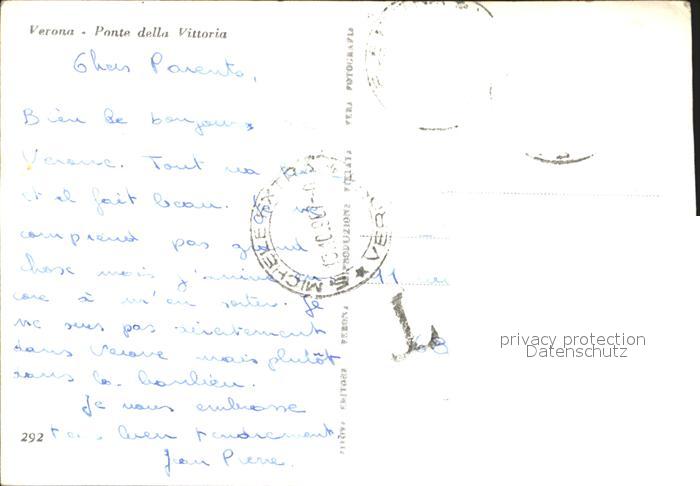 Verona - Ponte della Vittoria
Chers Parents,
Bien le bonjour
Verone. Tout va
et il fait beau. Je ne
comprend pas grand
chose mais j'arrive en
core à m'en sortir. Je
ne suis pas directement
dans Verone mais plutôt
dans la banlieue.
Je vous embrasse
tous bien tendrement
Jean Pierre.
292
VERA FOTOGRAFIA
RIPRODUZIONE VIETATA
VERONA
11
68
privacy protection
Datenschutz